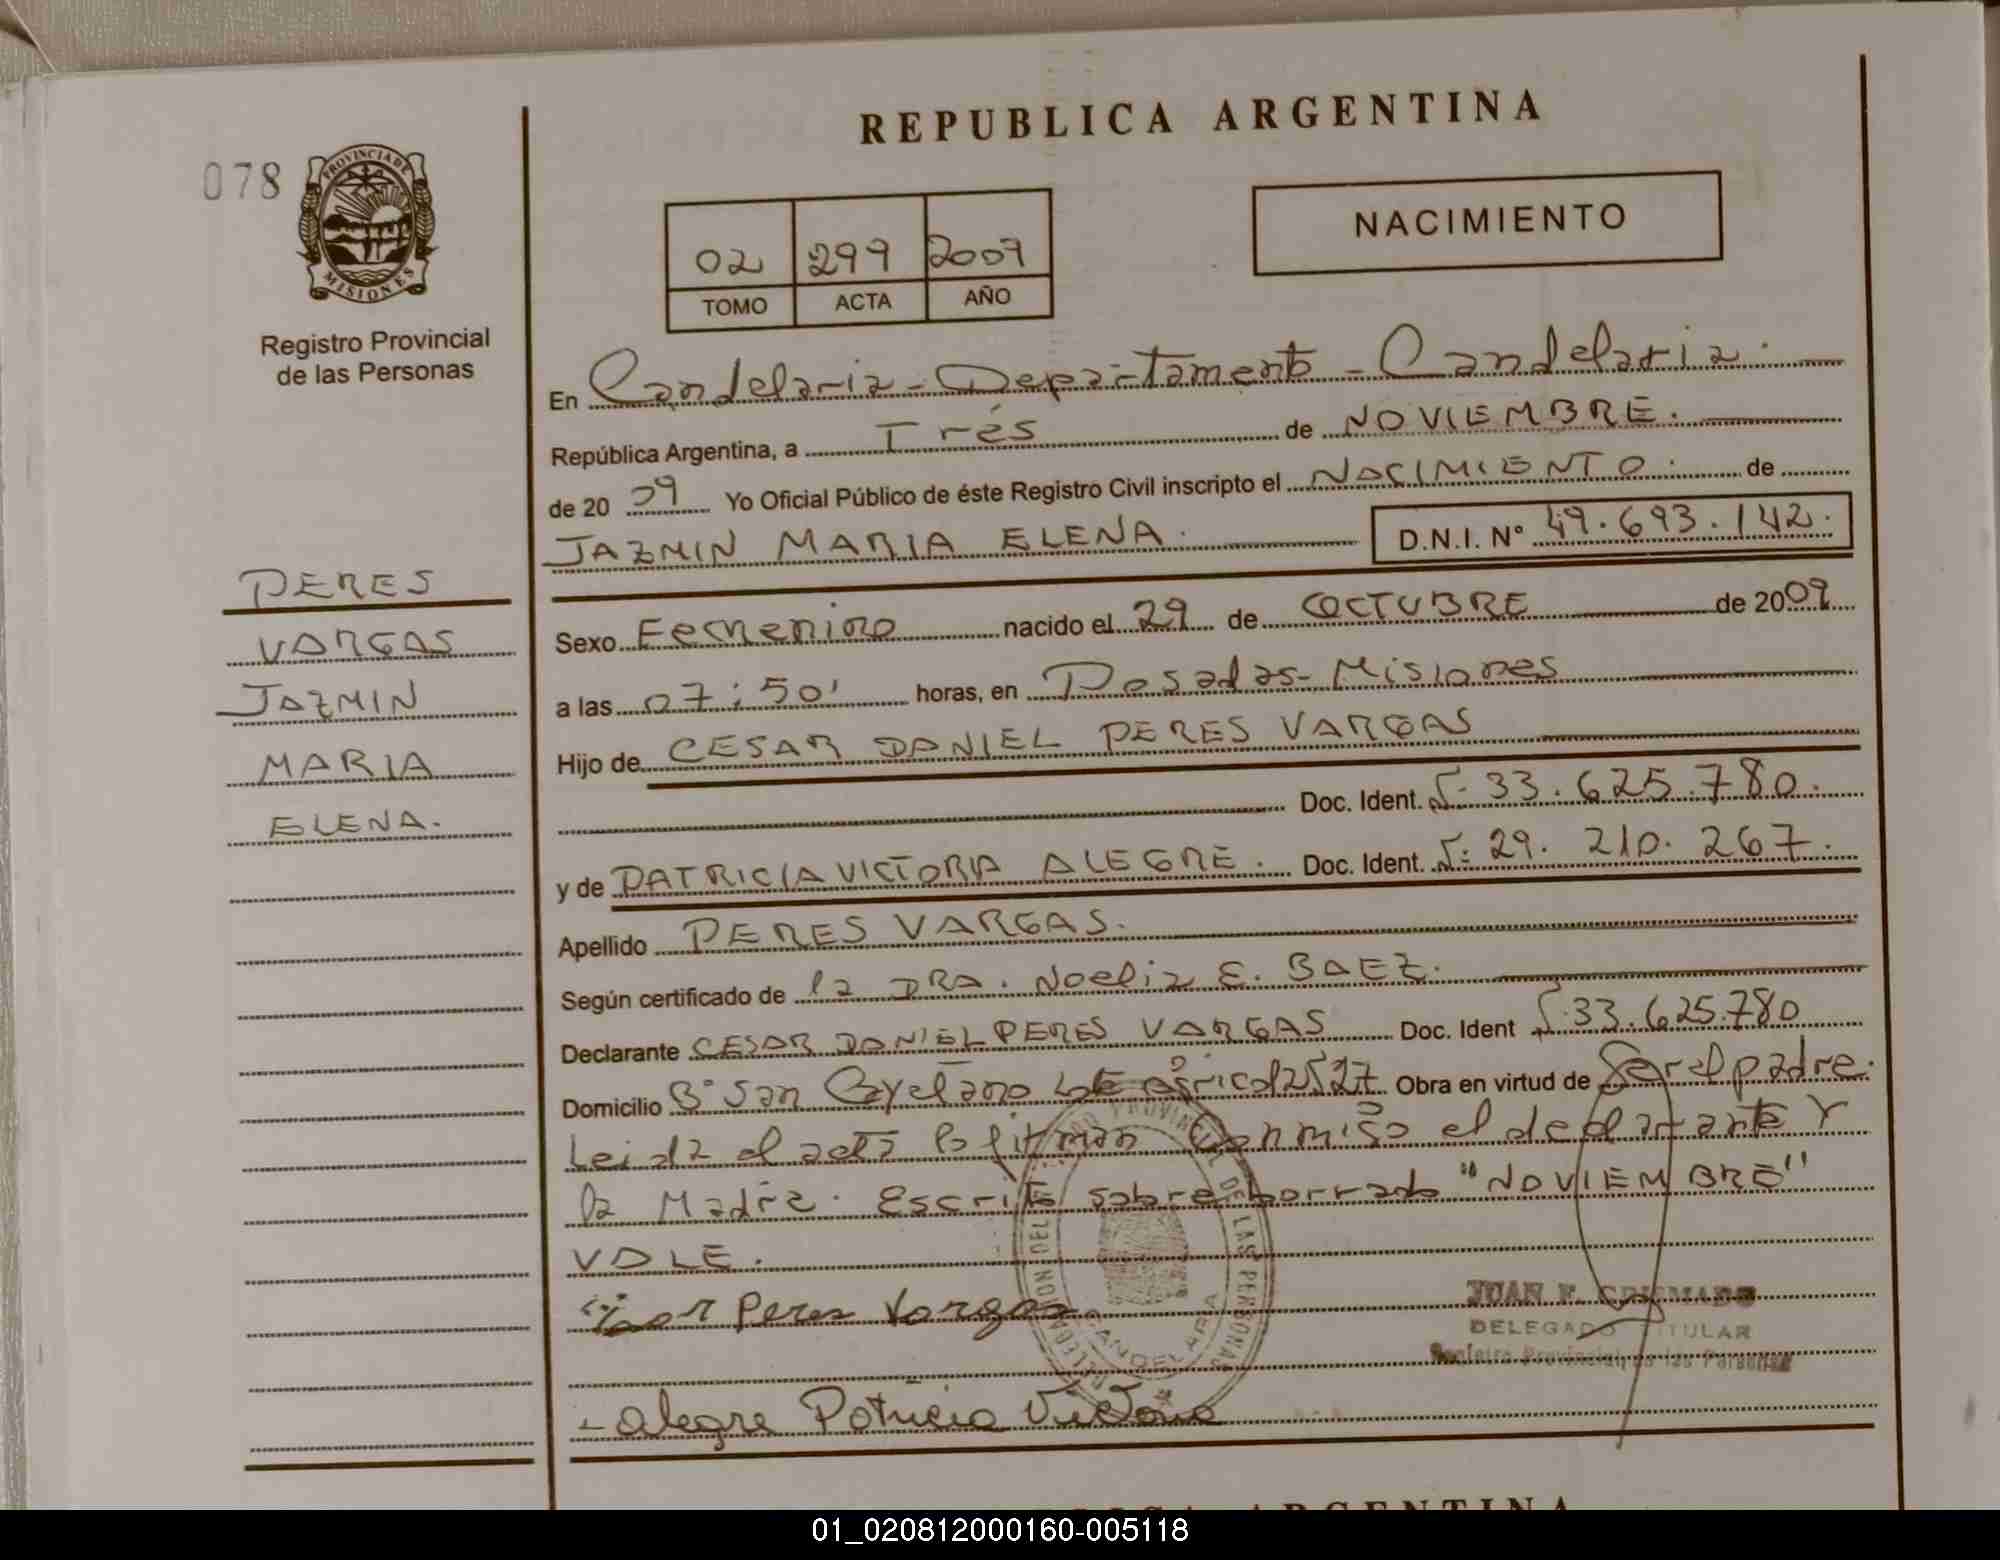 REPUBLICA ARGENTINA
078
PROVINCIA DE
MISIONES
Registro Provincial
de las Personas
NACIMIENTO
02 299 2009
TOMO ACTA AÑO
En Candelaria - Departamento - Candelaria.
República Argentina, a Tres de NOVIEMBRE.
de 20 09 Yo Oficial Público de éste Registro Civil inscripto el NACIMIENTO. de
JAZMIN MARIA ELENA. D.N.I. N° 49.693.142.
PERES
VARGAS
JAZMIN
MARIA
ELENA.
Sexo Femenino nacido el 29 de OCTUBRE de 2009
a las 07:50' horas, en Posadas - Misiones
Hijo de CESAR DANIEL PERES VARGAS
Doc. Ident. 33.625.780.
y de PATRICIA VICTORIA ALEGRE. Doc. Ident. 29.210.267.
Apellido PERES VARGAS.
Según certificado de la DRA. Noelia E. BAEZ.
Declarante CESAR DANIEL PERES VARGAS Doc. Ident 33.625.780
Domicilio B° San Cayetano Lote agricola 2527 Obra en virtud de Ser el padre.
Leida el acta la firman conmigo el declarante y
la Madre. Escrito sobre borrado "NOVIEMBRE"
VALE.
Peres Vargas
DELEGADO TITULAR
Registro Provincial de las Personas
PROVINCIAL DE LAS PERSONAS
CANDELARIA
- Alegre Patricia Victoria
ARGENTINA
01_020812000160-005118